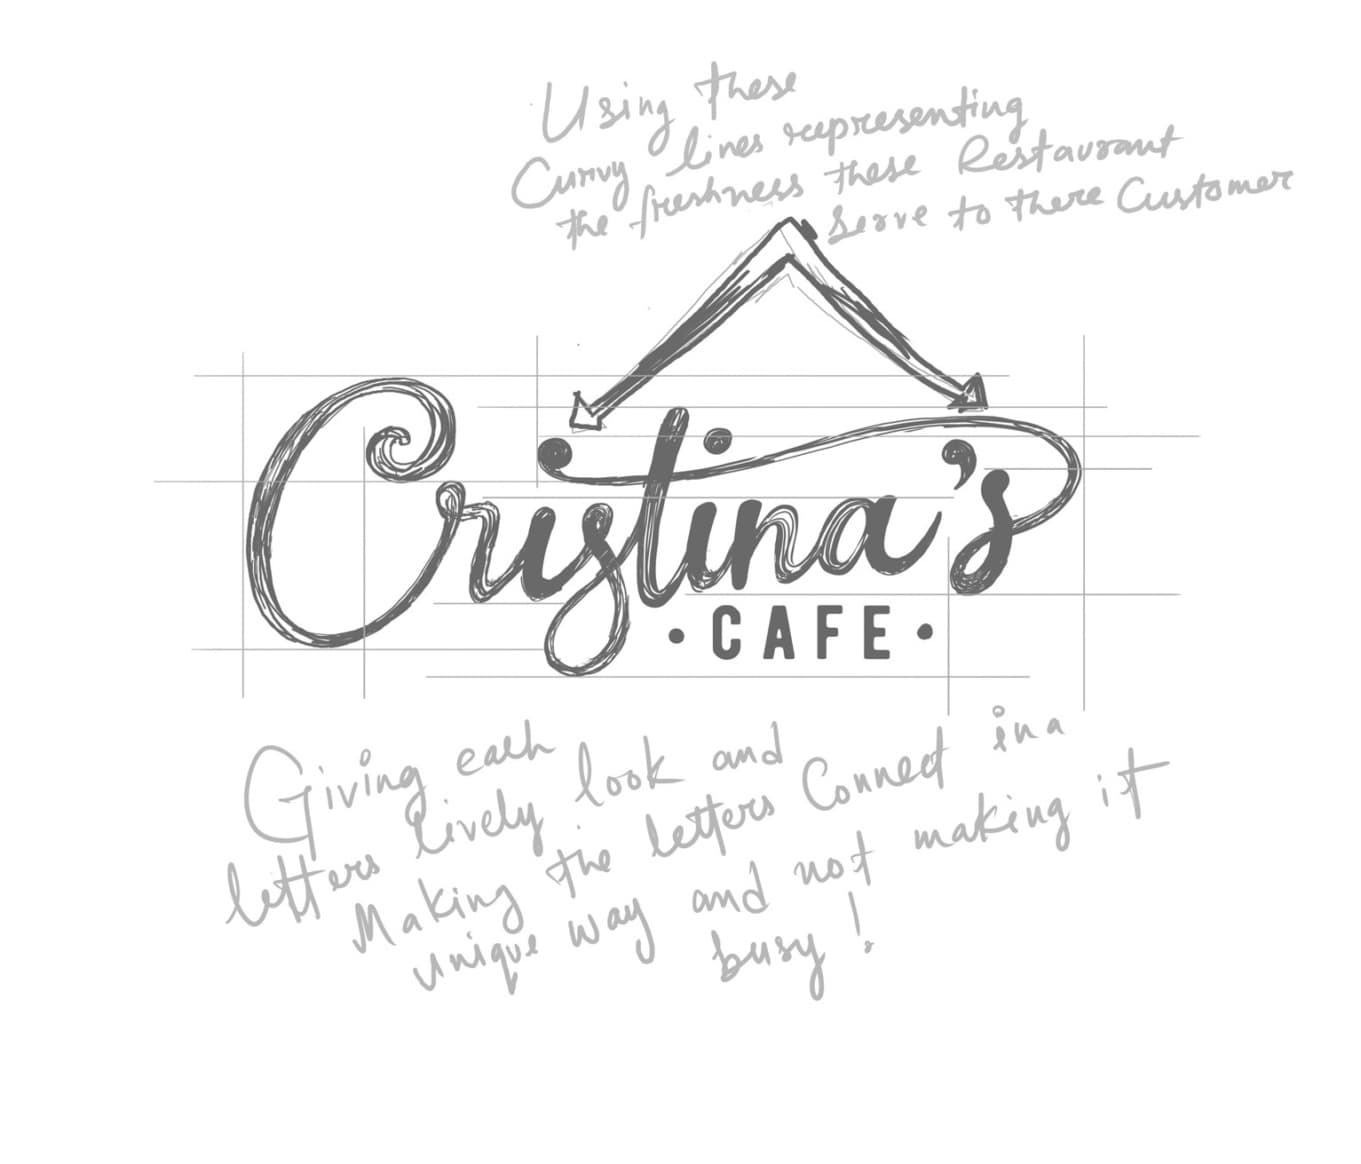 Using these
Curvy lines representing
the freshness these Restaurant
serve to there Customer
Cristina's
• CAFE •
Giving each
letters lively look and
Making the letters Connect in a
unique way and not making it
busy!